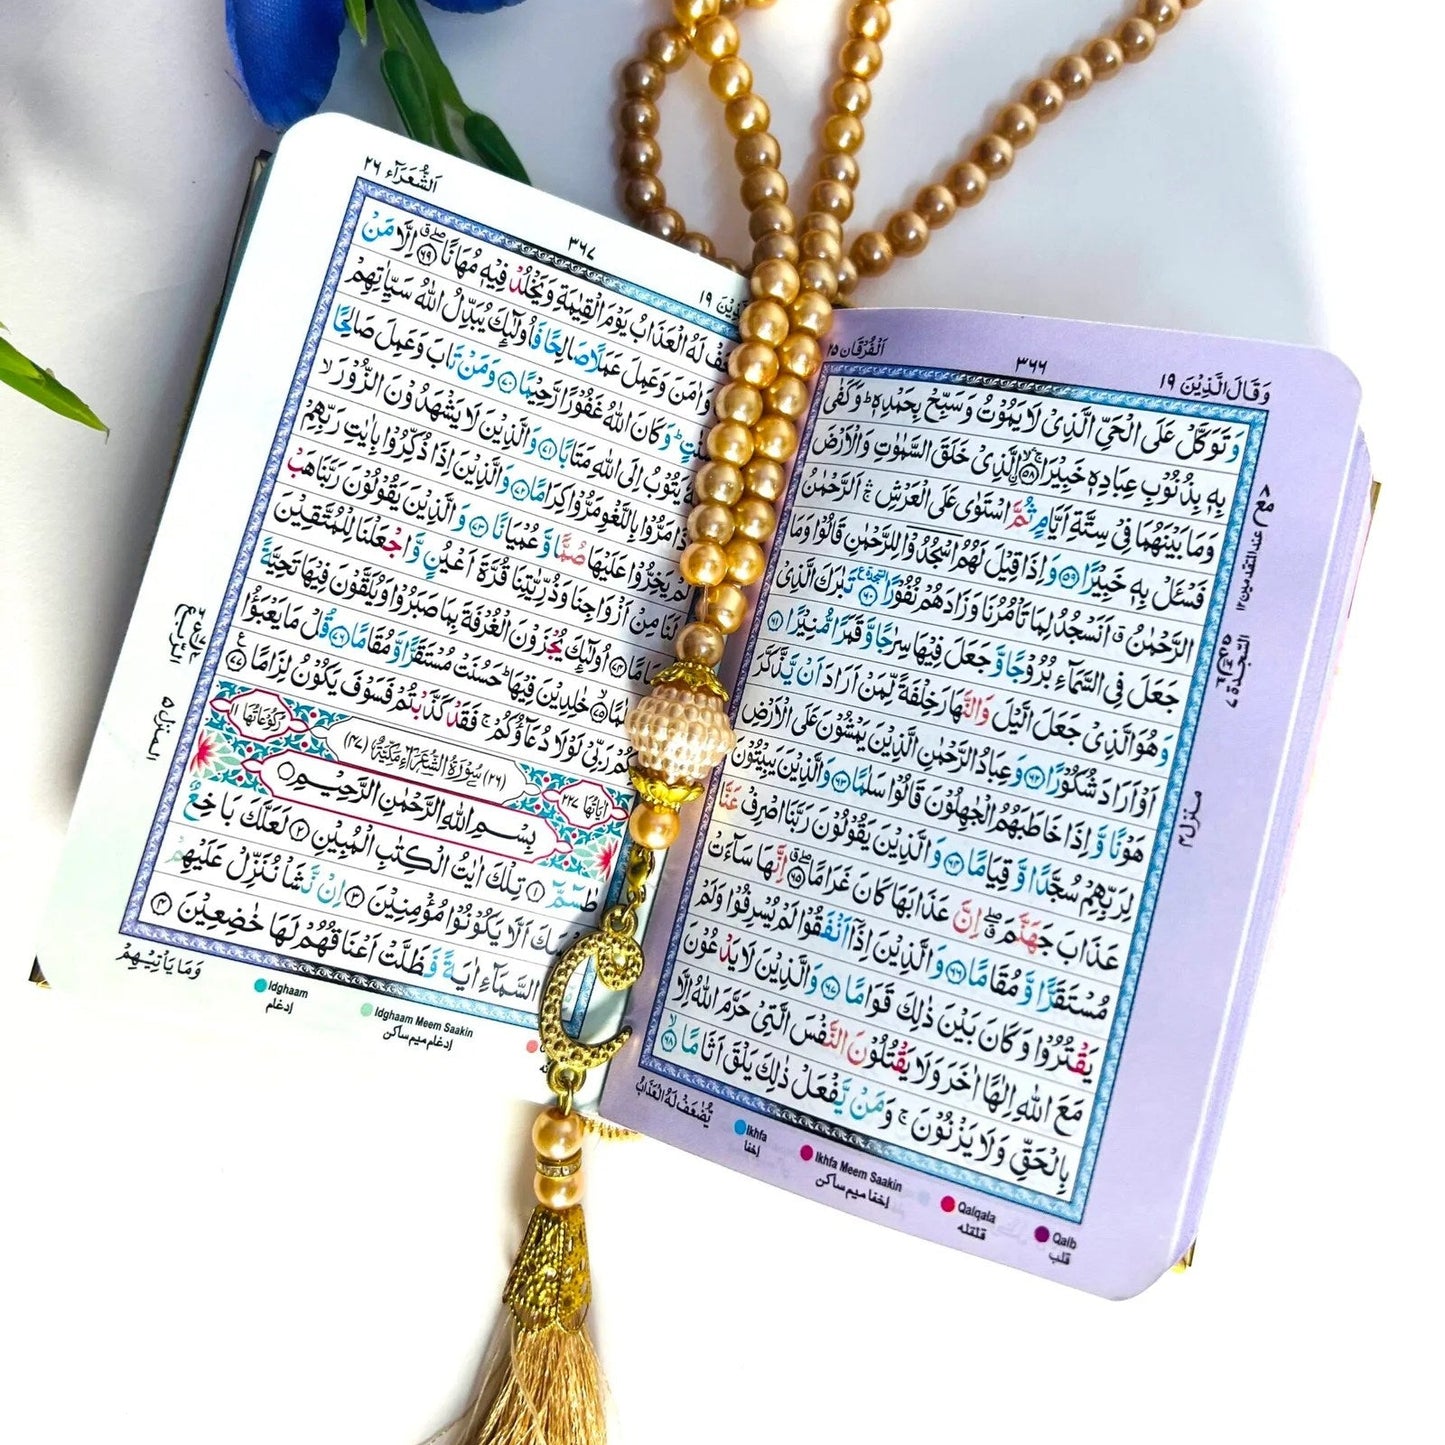 وَقَالَ الَّذِيْنَ ١٩
٣٦٦
اَلْفُرْقَان ٢٥
وَتَوَكَّلْ عَلَى الْحَيِّ الَّذِىْ لَا يَمُوْتُ وَسَبِّحْ بِحَمْدِهٖ ؕ وَكَفٰى
بِهٖ بِذُنُوْبِ عِبَادِهٖ خَبِيْرًا ۛۙ ﴿٥٨﴾ الَّذِىْ خَلَقَ السَّمٰوٰتِ وَالْاَرْضَ
وَمَا بَيْنَهُمَا فِىْ سِتَّةِ اَيَّامٍ ثُمَّ اسْتَوٰى عَلَى الْعَرْشِ ۛۚ اَلرَّحْمٰنُ
فَسْـَٔلْ بِهٖ خَبِيْرًا ﴿٥٩﴾ وَاِذَا قِيْلَ لَهُمُ اسْجُدُوْا لِلرَّحْمٰنِ قَالُوْا وَمَا
الرَّحْمٰنُ ق اَنَسْجُدُ لِمَا تَاْمُرُنَا وَزَادَهُمْ نُفُوْرًا ﴿٦٠﴾ تَبٰرَكَ الَّذِىْ
جَعَلَ فِى السَّمَآءِ بُرُوْجًا وَّجَعَلَ فِيْهَا سِرٰجًا وَّقَمَرًا مُّنِيْرًا ﴿٦١﴾
وَهُوَ الَّذِىْ جَعَلَ الَّيْلَ وَالنَّهَارَ خِلْفَةً لِّمَنْ اَرَادَ اَنْ يَّذَّكَّرَ
اَوْ اَرَادَ شُكُوْرًا ﴿٦٢﴾ وَعِبَادُ الرَّحْمٰنِ الَّذِيْنَ يَمْشُوْنَ عَلَى الْاَرْضِ
هَوْنًا وَّاِذَا خَاطَبَهُمُ الْجٰهِلُوْنَ قَالُوْا سَلٰمًا ﴿٦٣﴾ وَالَّذِيْنَ يَبِيْتُوْنَ
لِرَبِّهِمْ سُجَّدًا وَّقِيَامًا ﴿٦٤﴾ وَالَّذِيْنَ يَقُوْلُوْنَ رَبَّنَا اصْرِفْ عَنَّا
عَذَابَ جَهَنَّمَ ۖق اِنَّ عَذَابَهَا كَانَ غَرَامًا ۖق ﴿٦٥﴾ اِنَّهَا سَآءَتْ
مُسْتَقَرًّا وَّمُقَامًا ﴿٦٦﴾ وَالَّذِيْنَ اِذَآ اَنْفَقُوْا لَمْ يُسْرِفُوْا وَلَمْ
يَقْتُرُوْا وَكَانَ بَيْنَ ذٰلِكَ قَوَامًا ﴿٦٧﴾ وَالَّذِيْنَ لَا يَدْعُوْنَ
مَعَ اللّٰهِ اِلٰهًا اٰخَرَ وَلَا يَقْتُلُوْنَ النَّفْسَ الَّتِىْ حَرَّمَ اللّٰهُ اِلَّا
بِالْحَقِّ وَلَا يَزْنُوْنَ ۚ وَمَنْ يَّفْعَلْ ذٰلِكَ يَلْقَ اَثَامًا ۙ ﴿٦٨﴾
يُّضٰعَفْ لَهُ الْعَذَابُ
مع عند المتقدمين ١٢
السجدة ٧
منزل ٤
Ikhfa
إخفا
Ikhfa Meem Saakin
إخفا ميم ساكن
Qalqala
قلقله
Qalb
قلب
١٩
٣٦٧
اَلشُّعَرَآء ٢٦
لَهُ الْعَذَابُ يَوْمَ الْقِيٰمَةِ وَيَخْلُدْ فِيْهٖ مُهَانًا ۖق ﴿٦٩﴾ اِلَّا مَنْ
وَاٰمَنَ وَعَمِلَ عَمَلًا صَالِحًا فَاُولٰٓئِكَ يُبَدِّلُ اللّٰهُ سَيِّاٰتِهِمْ
ؕ وَكَانَ اللّٰهُ غَفُوْرًا رَّحِيْمًا ﴿٧٠﴾ وَمَنْ تَابَ وَعَمِلَ صَالِحًا
يَتُوْبُ اِلَى اللّٰهِ مَتَابًا ﴿٧١﴾ وَالَّذِيْنَ لَا يَشْهَدُوْنَ الزُّوْرَ ۙ
مَرُّوْا بِاللَّغْوِ مَرُّوْا كِرَامًا ﴿٧٢﴾ وَالَّذِيْنَ اِذَا ذُكِّرُوْا بِاٰيٰتِ رَبِّهِمْ
لَمْ يَخِرُّوْا عَلَيْهَا صُمًّا وَّعُمْيَانًا ﴿٧٣﴾ وَالَّذِيْنَ يَقُوْلُوْنَ رَبَّنَا هَبْ
لَنَا مِنْ اَزْوَاجِنَا وَذُرِّيّٰتِنَا قُرَّةَ اَعْيُنٍ وَّاجْعَلْنَا لِلْمُتَّقِيْنَ
اِمَامًا ﴿٧٤﴾ اُولٰٓئِكَ يُجْزَوْنَ الْغُرْفَةَ بِمَا صَبَرُوْا وَيُلَقَّوْنَ فِيْهَا تَحِيَّةً
﴿٧٥﴾ خٰلِدِيْنَ فِيْهَا ؕ حَسُنَتْ مُسْتَقَرًّا وَّمُقَامًا ﴿٧٦﴾ قُلْ مَا يَعْبَؤُا
رَبِّىْ لَوْلَا دُعَآؤُكُمْ ۚ فَقَدْ كَذَّبْتُمْ فَسَوْفَ يَكُوْنُ لِزَامًا ﴿٧٧﴾
اٰيَاتُهَا ٢٢٧
(٢٦) سُوْرَةُ الشُّعَرَآءِ مَكِّيَّةٌ (٤٧)
رُكُوْعَاتُهَا ١١
بِسْمِ اللّٰهِ الرَّحْمٰنِ الرَّحِيْمِ
طٰسٓمّٓ ﴿١﴾ تِلْكَ اٰيٰتُ الْكِتٰبِ الْمُبِيْنِ ﴿٢﴾ لَعَلَّكَ بَاخِعٌ
اَلَّا يَكُوْنُوْا مُؤْمِنِيْنَ ﴿٣﴾ اِنْ نَّشَاْ نُنَزِّلْ عَلَيْهِمْ
السَّمَآءِ اٰيَةً فَظَلَّتْ اَعْنَاقُهُمْ لَهَا خٰضِعِيْنَ ﴿٤﴾
وَمَا يَاْتِيْهِمْ
المنزل ٥
Idghaam
إدغام
Idghaam Meem Saakin
إدغام ميم ساكن